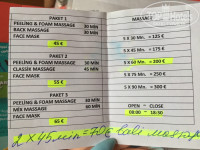 PAKET 1
PEELING & FOAM MASSAGE 30 MIN
BACK MASSAGE 30 MIN
FACE MASK
45 €
PAKET 2
PEELING & FOAM MASSAGE 30 MIN
CLASSIK MASSAGE 45 MIN
FACE MASK
55 €
PAKET 3
PEELING & FOAM MASSAGE 30 MIN
MIX MASSAGE 60 MIN
FACE MASK
65 €
MASSAGE
5 X 30 MIN. = 125 €
5 X 45 MIN. = 175 €
5 X 60 MIN. = 200 €
5 X 75 MIN. = 250 €
5 X 90 MIN. = 300 €
OPEN – CLOSE
09:00 – 18:30
2 X 45 min = 70 €